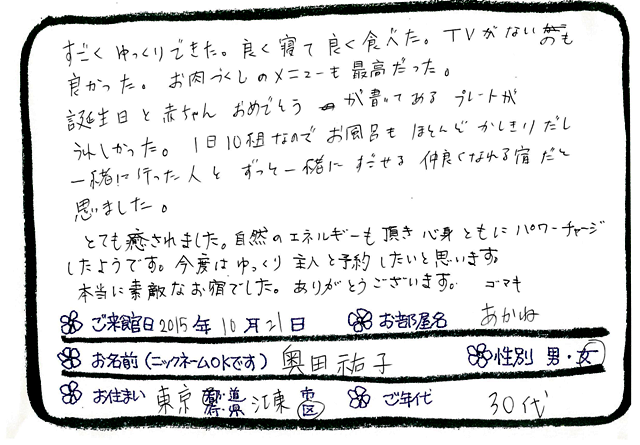 すごくゆっくりできた。良く寝て良く食べた。TVがないのも
良かった。お肉づくしのメニューも最高だった。
誕生日と赤ちゃんおめでとうが書いてあるプレートが
うれしかった。1日10組なのでお風呂もほとんどかしきりだし
一緒に行った人とずっと一緒にすごせる仲良くなれる宿だと
思いました。
とても癒されました。自然のエネルギーも頂き心身ともにパワーチャージ
したようです。今度はゆっくり主人と予約したいと思います。
本当に素敵なお宿でした。ありがとうございます。 ゴマキ
ご来館日 2015年10月21日 お部屋名 あかね
お名前(ニックネームOKです) 奥田祐子 性別 男・女
お住まい 東京 都・道・府・県 江東 市・区 ご年代 30代